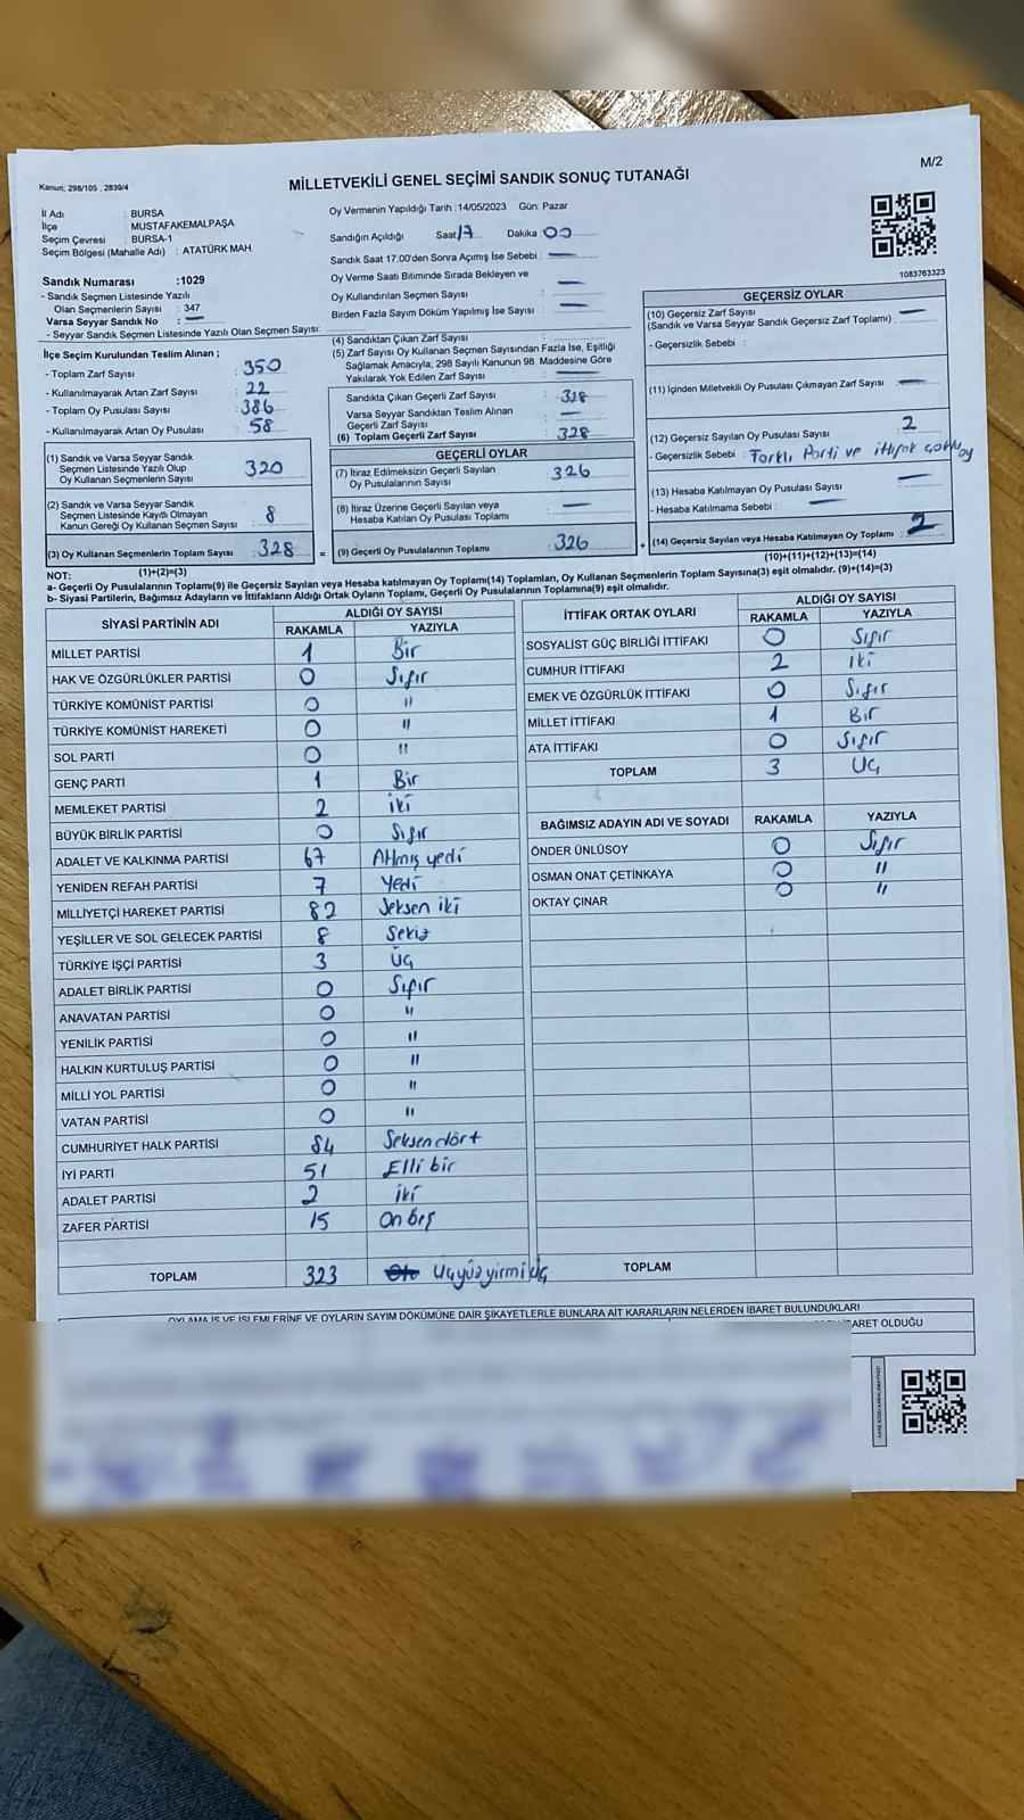 M/2
Kanun; 298/105 , 2839/4
MİLLETVEKİLİ GENEL SEÇİMİ SANDIK SONUÇ TUTANAĞI
İl Adı : BURSA
İlçe : MUSTAFAKEMALPAŞA
Seçim Çevresi : BURSA-1
Seçim Bölgesi (Mahalle Adı) : ATATÜRK MAH.
Oy Vermenin Yapıldığı Tarih :14/05/2023 Gün: Pazar
Sandığın Açıldığı Saat 17 Dakika 00
Sandık Saat 17.00'den Sonra Açımış İse Sebebi : —
Oy Verme Saati Bitiminde Sırada Bekleyen ve
Oy Kullandırılan Seçmen Sayısı : —
Birden Fazla Sayım Döküm Yapılmış İse Sayısı : —
1083763323
Sandık Numarası :1029
- Sandık Seçmen Listesinde Yazılı
Olan Seçmenlerin Sayısı : 347
Varsa Seyyar Sandık No : —
- Seyyar Sandık Seçmen Listesinde Yazılı Olan Seçmen Sayısı:
İlçe Seçim Kurulundan Teslim Alınan ;
- Toplam Zarf Sayısı : 350
- Kullanılmayarak Artan Zarf Sayısı : 22
- Toplam Oy Pusulası Sayısı : 386
- Kullanılmayarak Artan Oy Pusulası : 58
(1) Sandık ve Varsa Seyyar Sandık
Seçmen Listesinde Yazılı Olup
Oy Kullanan Seçmenlerin Sayısı : 320
(2) Sandık ve Varsa Seyyar Sandık
Seçmen Listesinde Kayıtlı Olmayan
Kanun Gereği Oy Kullanan Seçmen Sayısı : 8
(3) Oy Kullanan Seçmenlerin Toplam Sayısı : 328
(1)+(2)=(3)
(4) Sandıktan Çıkan Zarf Sayısı :
(5) Zarf Sayısı Oy Kullanan Seçmen Sayısından Fazla İse, Eşitliği
Sağlamak Amacıyla, 298 Sayılı Kanunun 98. Maddesine Göre
Yakılarak Yok Edilen Zarf Sayısı : —
Sandıkta Çıkan Geçerli Zarf Sayısı : 328
Varsa Seyyar Sandıktan Teslim Alınan
Geçerli Zarf Sayısı : —
(6) Toplam Geçerli Zarf Sayısı : 328
GEÇERLİ OYLAR
(7) İtiraz Edilmeksizin Geçerli Sayılan
Oy Pusulalarının Sayısı : 326
(8) İtiraz Üzerine Geçerli Sayılan veya
Hesaba Katılan Oy Pusulası Toplamı : —
= (9) Geçerli Oy Pusulalarının Toplamı : 326
GEÇERSİZ OYLAR
(10) Geçersiz Zarf Sayısı : —
(Sandık ve Varsa Seyyar Sandık Geçersiz Zarf Toplamı)
- Geçersizlik Sebebi :
(11) İçinden Milletvekili Oy Pusulası Çıkmayan Zarf Sayısı : —
(12) Geçersiz Sayılan Oy Pusulası Sayısı : 2
- Geçersizlik Sebebi : Farklı Parti ve ittifak oy
(13) Hesaba Katılmayan Oy Pusulası Sayısı : —
- Hesaba Katılmama Sebebi : —
+ (14) Geçersiz Sayılan veya Hesaba Katılmayan Oy Toplamı : 2
(10)+(11)+(12)+(13)=(14)
NOT:
a- Geçerli Oy Pusulalarının Toplamı(9) ile Geçersiz Sayılan veya Hesaba katılmayan Oy Toplamı(14) Toplamları, Oy Kullanan Seçmenlerin Toplam Sayısına(3) eşit olmalıdır. (9)+(14)=(3)
b- Siyasi Partilerin, Bağımsız Adayların ve İttifakların Aldığı Ortak Oyların Toplamı, Geçerli Oy Pusulalarının Toplamına(9) eşit olmalıdır.
SİYASİ PARTİNİN ADI ALDIĞI OY SAYISI
RAKAMLA YAZIYLA
MİLLET PARTİSİ 1 Bir
HAK VE ÖZGÜRLÜKLER PARTİSİ 0 Sıfır
TÜRKİYE KOMÜNİST PARTİSİ 0 "
TÜRKİYE KOMÜNİST HAREKETİ 0 "
SOL PARTİ 0 "
GENÇ PARTİ 1 Bir
MEMLEKET PARTİSİ 2 iki
BÜYÜK BİRLİK PARTİSİ 0 Sıfır
ADALET VE KALKINMA PARTİSİ 67 Altmış yedi
YENİDEN REFAH PARTİSİ 7 Yedi
MİLLİYETÇİ HAREKET PARTİSİ 82 Seksen iki
YEŞİLLER VE SOL GELECEK PARTİSİ 8 Sekiz
TÜRKİYE İŞÇİ PARTİSİ 3 Üç
ADALET BİRLİK PARTİSİ 0 Sıfır
ANAVATAN PARTİSİ 0 "
YENİLİK PARTİSİ 0 "
HALKIN KURTULUŞ PARTİSİ 0 "
MİLLİ YOL PARTİSİ 0 "
VATAN PARTİSİ 0 "
CUMHURİYET HALK PARTİSİ 84 Seksendört
İYİ PARTİ 51 Elli bir
ADALET PARTİSİ 2 iki
ZAFER PARTİSİ 15 On beş
TOPLAM 323 Üçyüzyirmi üç
İTTİFAK ORTAK OYLARI ALDIĞI OY SAYISI
RAKAMLA YAZIYLA
SOSYALİST GÜÇ BİRLİĞİ İTTİFAKI 0 Sıfır
CUMHUR İTTİFAKI 2 iki
EMEK VE ÖZGÜRLÜK İTTİFAKI 0 Sıfır
MİLLET İTTİFAKI 1 Bir
ATA İTTİFAKI 0 Sıfır
TOPLAM 3 Üç
BAĞIMSIZ ADAYIN ADI VE SOYADI RAKAMLA YAZIYLA
ÖNDER ÜNLÜSOY 0 Sıfır
OSMAN ONAT ÇETİNKAYA 0 "
OKTAY ÇINAR 0 "
TOPLAM
OYLAMA İŞ VE İŞLEMLERİNE VE OYLARIN SAYIM DÖKÜMÜNE DAİR ŞİKAYETLERLE BUNLARA AİT KARARLARIN NELERDEN İBARET BULUNDUKLARI
İBARET OLDUĞU